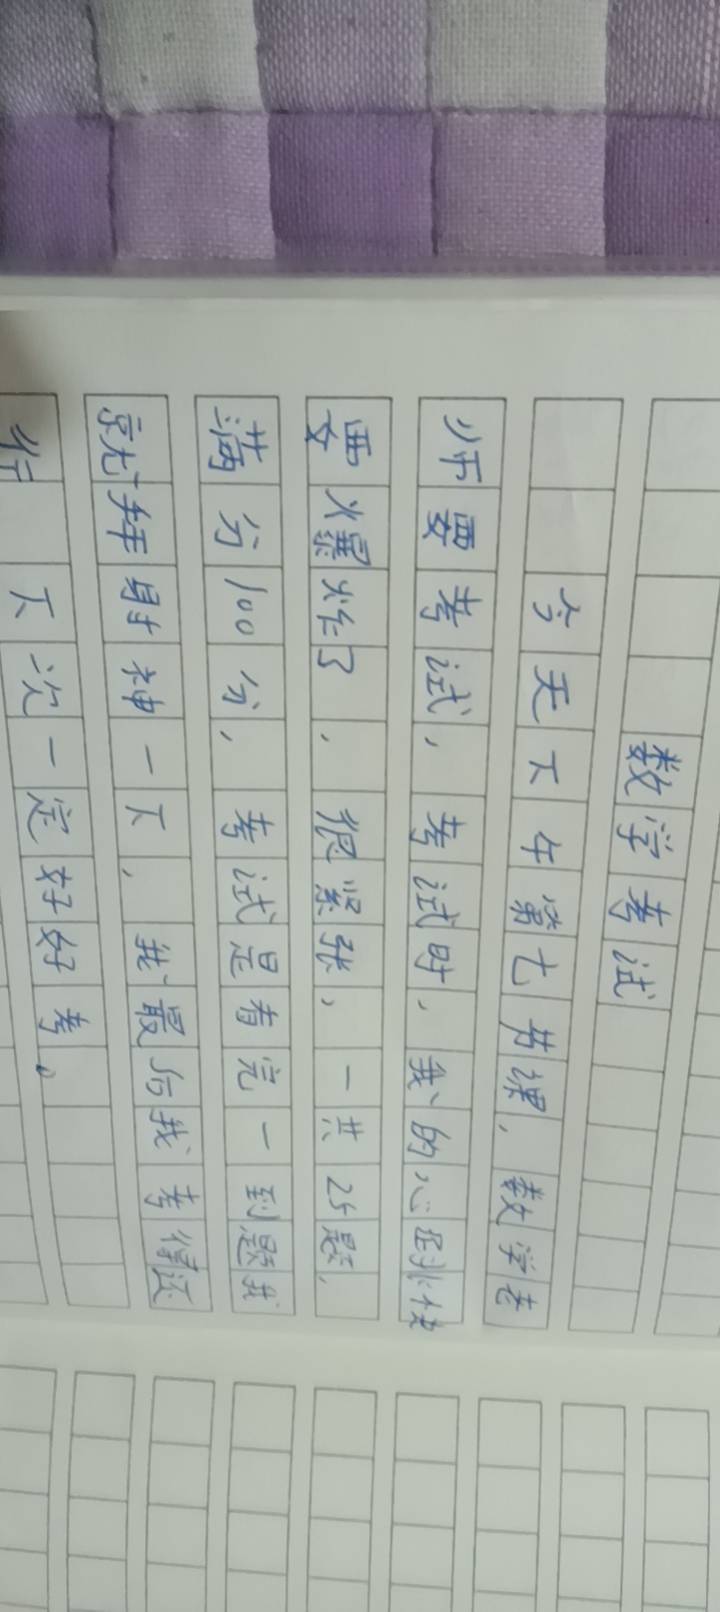 数学考试
今天下午第七节课，数学老
师要考试，考试时，我的心跳快
要爆炸了，很紧张，一共25题，
满分100分，考试是有完一到题我
就拜财神一下，我最后我考得还
行 下次一定好好考。